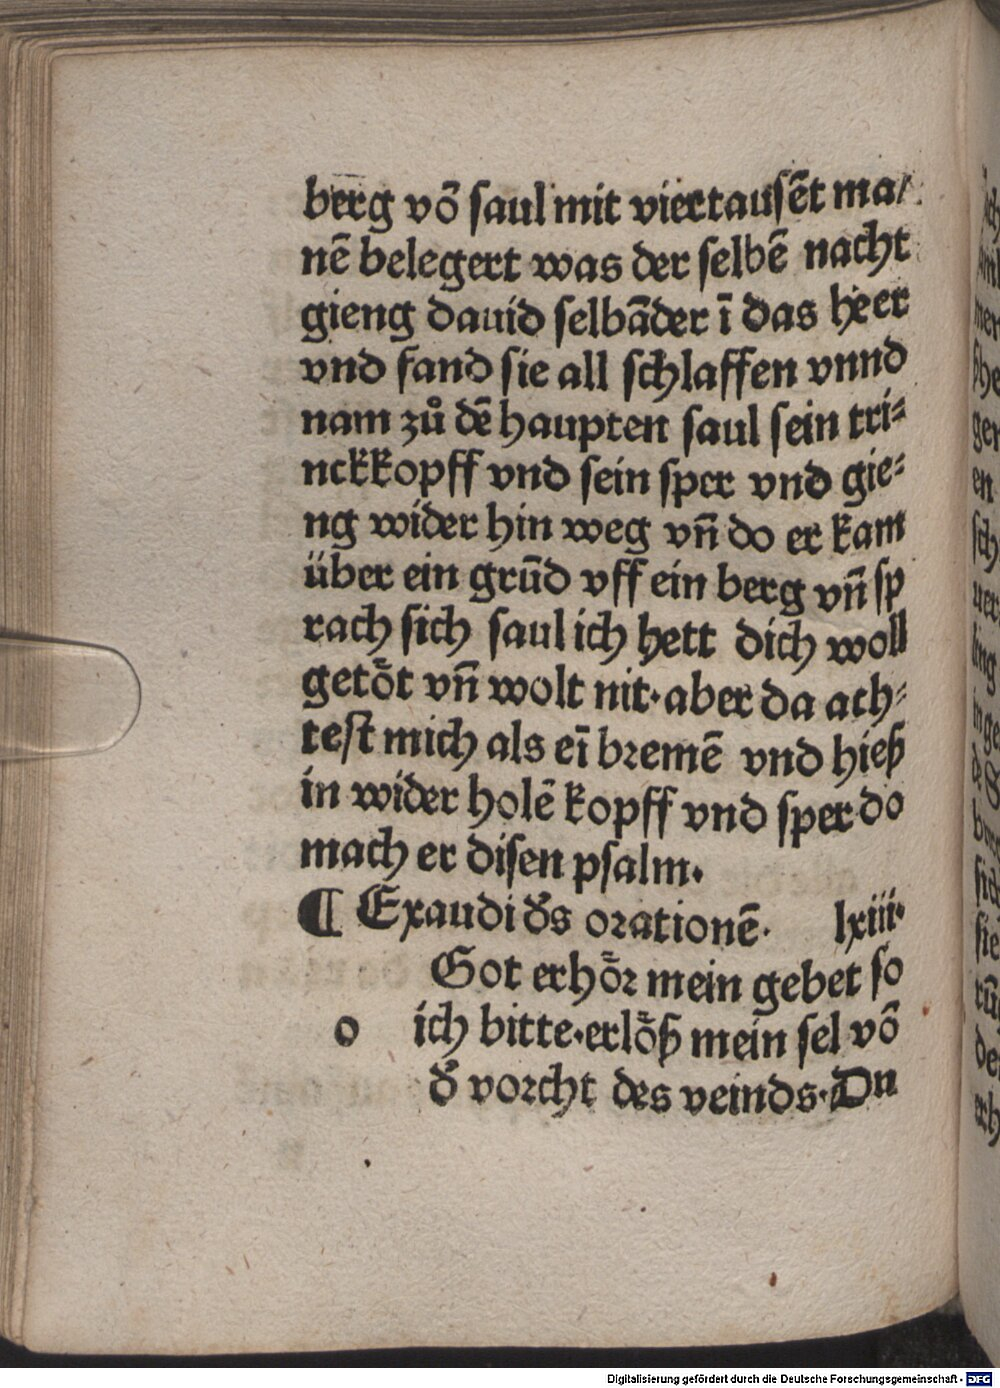 berg võ saul mit viertausẽt ma/
nẽ belegert was der selbẽ nacht
gieng dauid selbãder ĩ das heer
vnd fand sie all schlaffen vnnd
nam zů dẽ haupten saul sein tri⸗
nckkopff vnd sein sper vnd gie⸗
ng wider hin weg vñ do er kam
über ein grũd vff ein berg vñ sp
rach sich saul ich hett dich woll
getoͤt vñ wolt nit·aber da ach⸗
test mich als eĩ bremẽ vnd hieß
in wider holẽ kopff vnd sper do
mach er disen psalm.
¶ Exaudi d̾s orationẽ. lxiii.
Got erhoͤr mein gebet so
o ich bitte·erloͤß mein sel võ
d̾ vorcht des veinds·Du
Digitalisierung gefördert durch die Deutsche Forschungsgemeinschaft - DFG